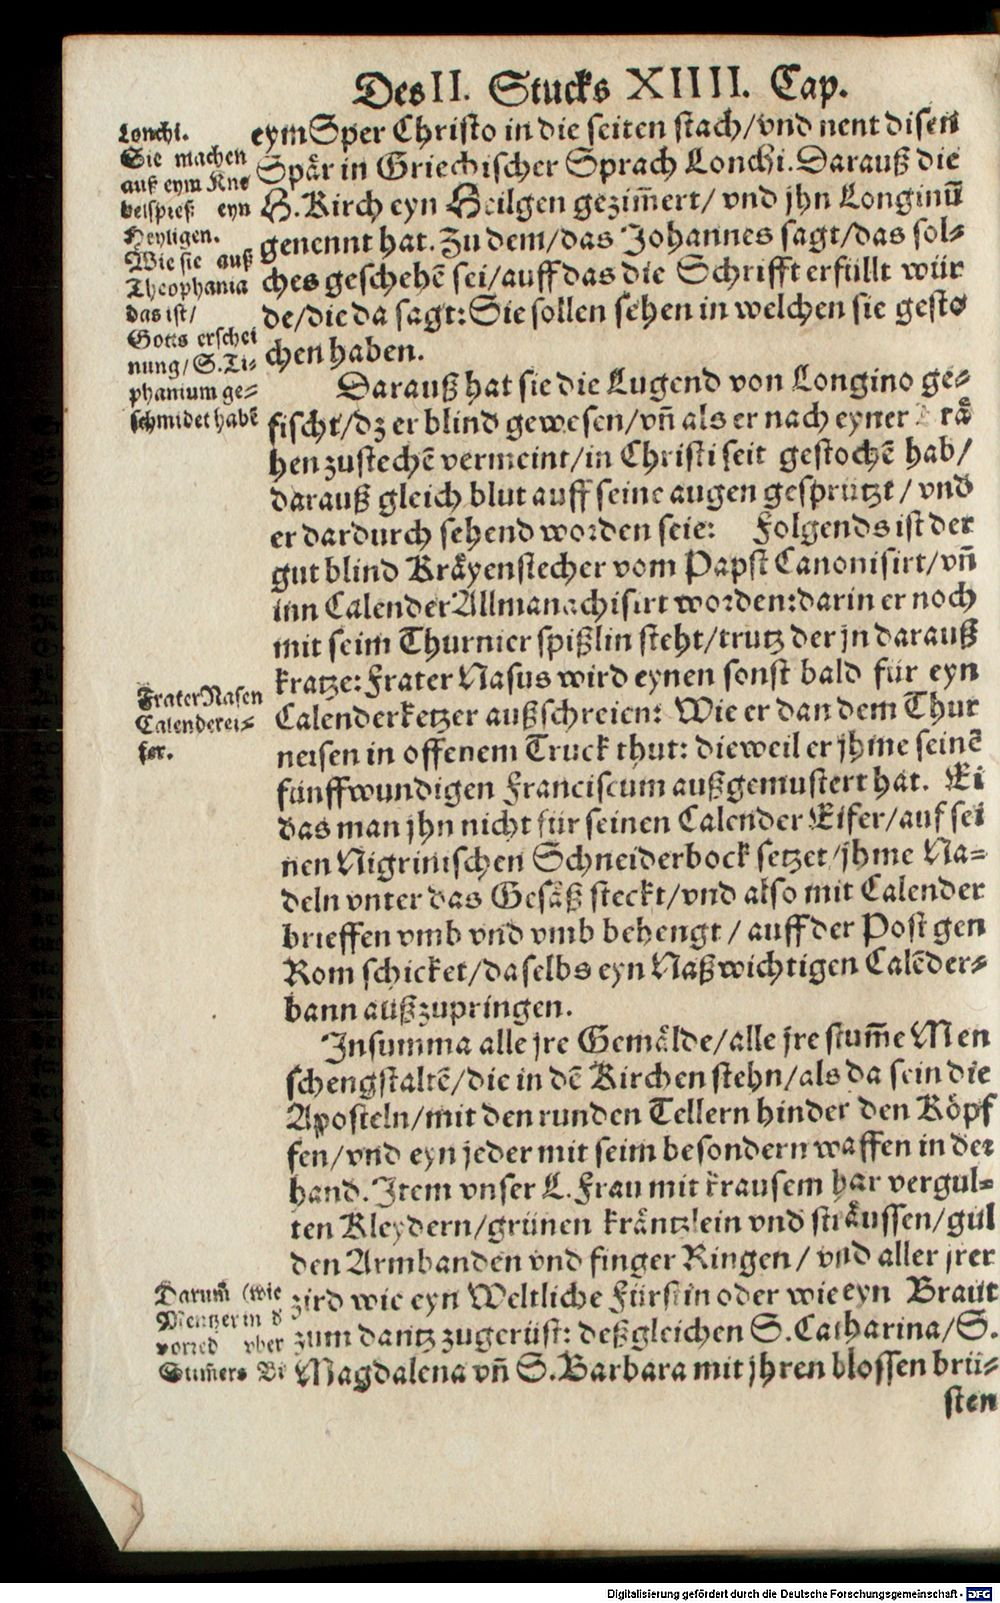 Des II. Stucks XIIII. Cap.
Lonchi.
Sie machen
auß eym Kne
belspieß eyn
Heyligen.
Wie sie auß
Theophania
das ist/
Gotts erschei
nung/S.Ti-
phanium ge-
schmidet habē
eym Sper Christo in die seiten stach/vnd nent disen
Spår in Griechischer Sprach Lonchi. Darauß die
H. Kirch eyn Heilgen gezim̄ert/ vnd jhn Longinū
genennt hat. Zu dem/das Johannes sagt/das sol-
ches geschehē sei/auff das die Schrifft erfüllt wür
de/die da sagt: Sie sollen sehen in welchen sie gesto
chen haben.
Darauß hat sie die Lugend von Longino ge-
fischt/dz er blind gewesen/vn̄ als er nach eyner rå
hen zustechē vermeint/in Christi seit gestochē hab/
darauß gleich blut auff seine augen gesprützt/ vnd
er dardurch sehend worden seie: Folgends ist der
gut blind Kråyenstecher vom Papst Canonisirt/vn̄
inn Calender Allmanachisirt worden: darin er noch
mit seim Thurnier spißlin steht/trutz der jn darauß
kratze: Frater Nasus wird eynen sonst bald für eyn
Frater Nasen
Calenderei-
fer.
Calenderketzer außschreien: Wie er dan dem Thur
neisen in offenem Truck thut: dieweil er jhme seinē
fünffwundigen Franciscum außgemustert hat. Ei
das man jhn nicht für seinen Calender Eifer/auf sei
nen Nigrinischen Schneiderbock setzet/jhme Na-
deln vnter das Gesåß steckt/vnd also mit Calender
brieffen vmb vnd vmb behengt/ auff der Post gen
Rom schicket/daselbs eyn Naßwichtigen Calēder-
bann außzupringen.
Insumma alle jre Gemålde/alle jre stum̄e Men
schengstaltē/die in dē Kirchen stehn/als da sein die
Aposteln/mit den runden Tellern hinder den Köpf
fen/vnd eyn jeder mit seim besondern waffen in der
hand. Item vnser L. Frau mit krausem har vergul-
ten Kleydern/grünen kråntzlein vnd stråussen/gül
den Armbanden vnd finger Ringen/ vnd aller jrer
Darum̄ (wie
Mentzer in d
vorred vber
Sum̄ers Bi
zird wie eyn Weltliche Fürstin oder wie eyn Braut
zum dantz zugerüst: deßgleichen S. Catharina/S.
Magdalena vn̄ S. Barbara mit jhren blossen brü-
sten
Digitalisierung gefördert durch die Deutsche Forschungsgemeinschaft - DFG